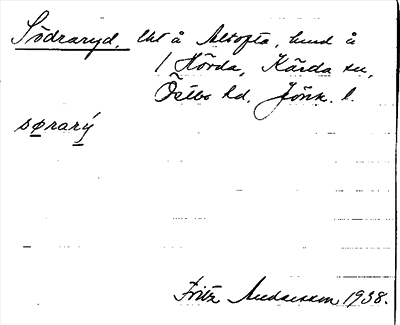 Södraryd, lht å Altofta, hmd å
1 Hörda, Kärda sn,
Östbo hd, Jönk. l.
sørarý
Fritz Andersson 1938.